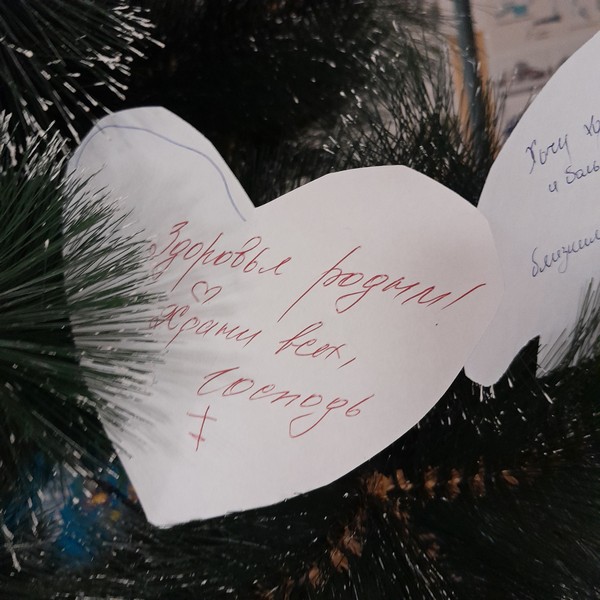 Здоровья родным!
Храни всех,
Господь
Хочу
и боль
близким